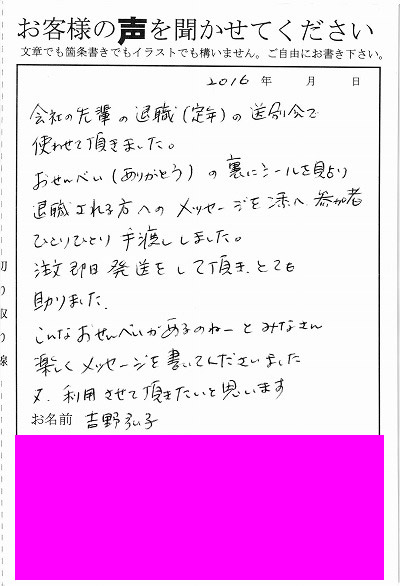 お客様の声を聞かせてください
文章でも箇条書きでもイラストでも構いません。ご自由にお書き下さい。
2016 年 月 日
会社の先輩の退職(定年)の送別会で
使わせて頂きました。
おせんべい(ありがとう)の裏にシールを貼り
退職される方へのメッセージを添へ 参加者
ひとりひとり手渡ししました。
注文即日発送をして頂き、とても
助りました
こんなおせんべいがあるのねーとみなさん
楽しくメッセージを書いてくださいました
又、利用させて頂きたいと思います
お名前 吉野弘子
切り取り線